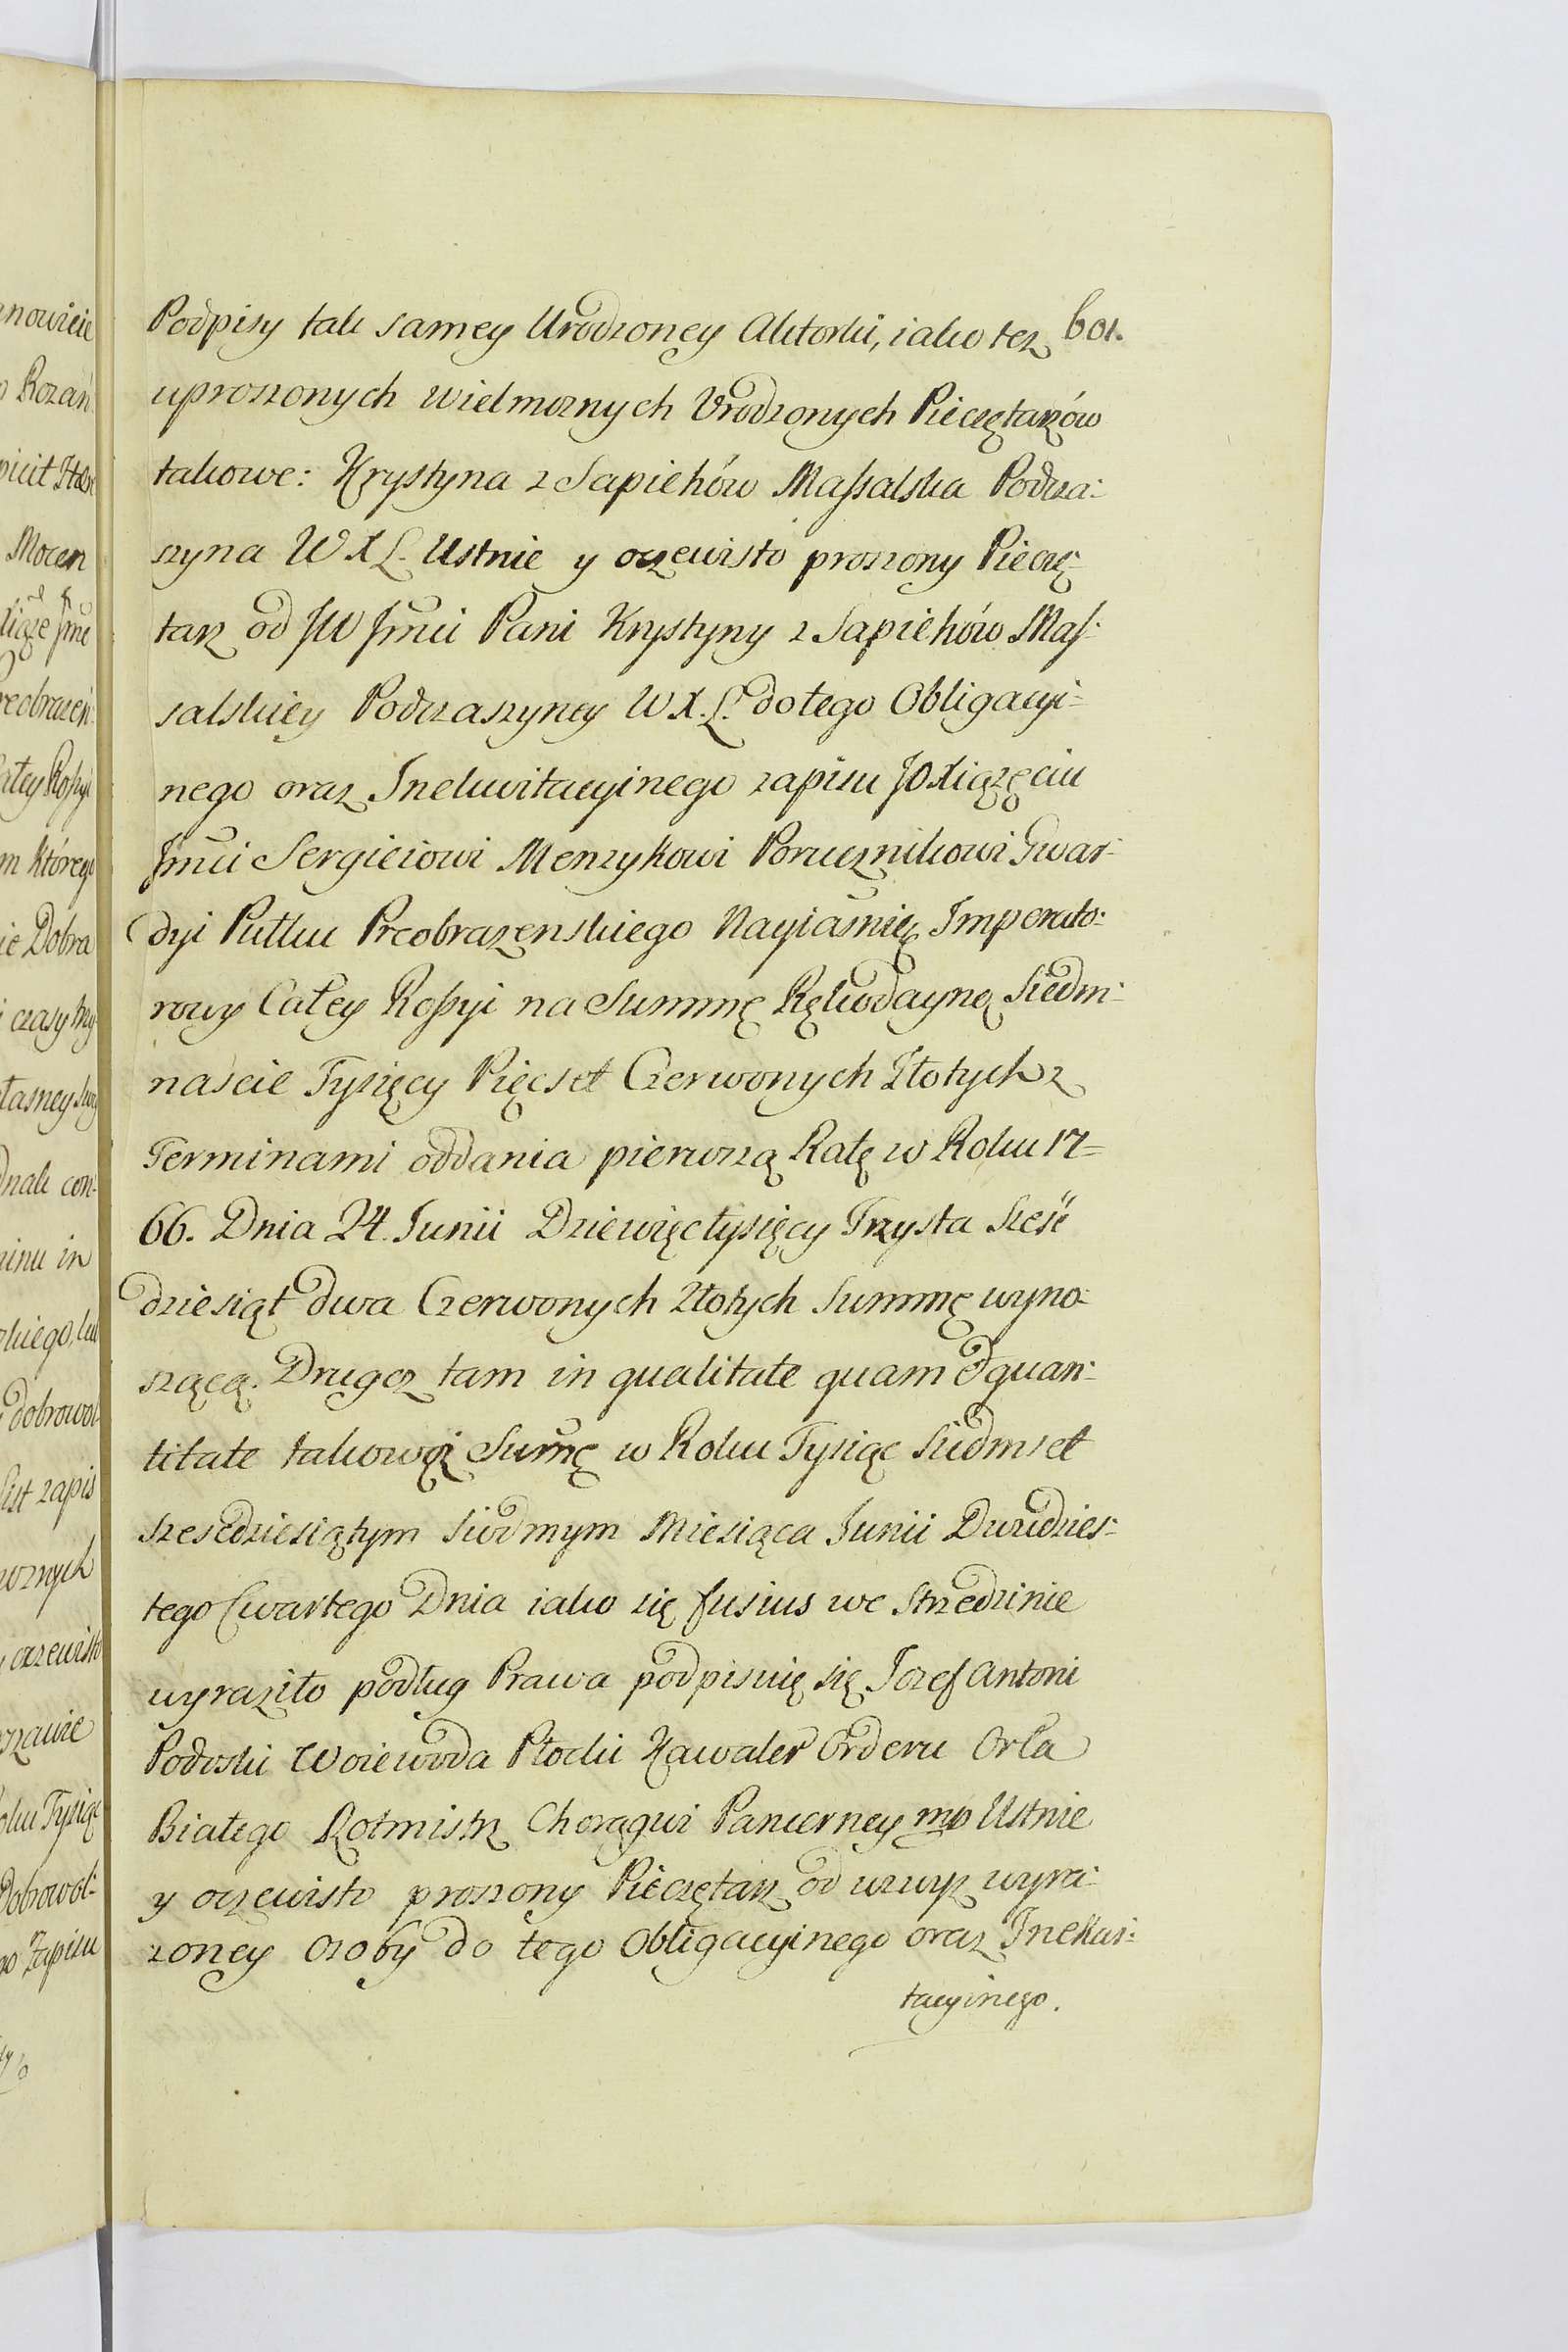 Podpisy tak samey Urodzoney Aktorki, iako tez 601.
uproszonych wielmoznych Urodzonych Pieczętarzów
takowe: Krystyna z Sapiehów Massalska Podcza:
szyna W X L. Ustnie y oczewisto proszony Pieczę:
tarz od JW Jmci Pani Krystyny z Sapiehów Mas:
salskiey Podczaszyney W X. L. do tego Obligacyi=
nego oraz Inekwitacyinego zapisu JO Xiązęciu
Jmci Sergieiowi Menzykowi Porucznikowi Gwar:
dyi Pułku Preobrazenskiego Nayiaśnię Imperato:
rowy Całey Rossyi na Summę Rękodayną Siedm:
naście Tysięcy Pięcset Czerwonych Złotych z
Terminami oddania pierwszą Ratę w Roku 17=
66. Dnia 24. Junii Dziewięc tysięcy Trzysta Sześć
dziesiąt dwa Czerwonych Złotych Summę wyno:
szącą. Drugąz tam in qualitate quam & quan:
titate takowąz Sum̃ę w Roku Tysiąc Siedmset
szescdziesiątym siodmym Miesiąca Junii Dwudzies:
tego Czwartego Dnia iako się fusius we Strzedzinie
wyraziło podług Prawa podpisuię się Jozef Antoni
Podoski Woiewoda Płocki Kawaler Orderu Orła
Białego Rotmistrz Chorągwi Pancerney mp Ustnie
y oczewisto proszony Pieczętarz od wzwyz wyra:
zoney Osoby do tego Obligacyinego oraz Inekwi:
tacyinego.